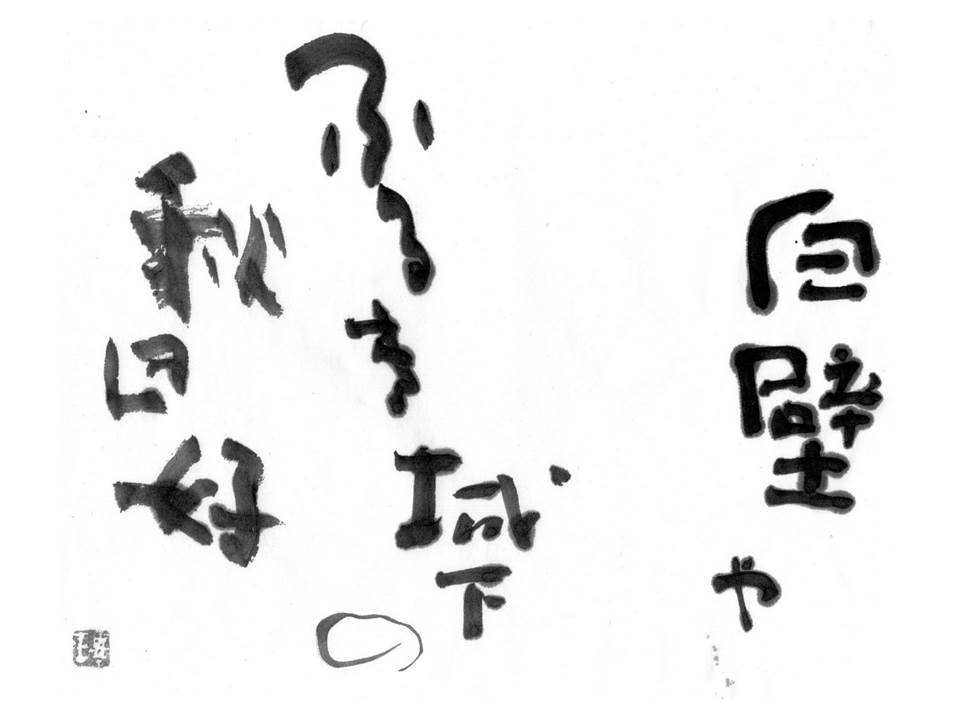 白壁や
ふるき城下の
秋日好